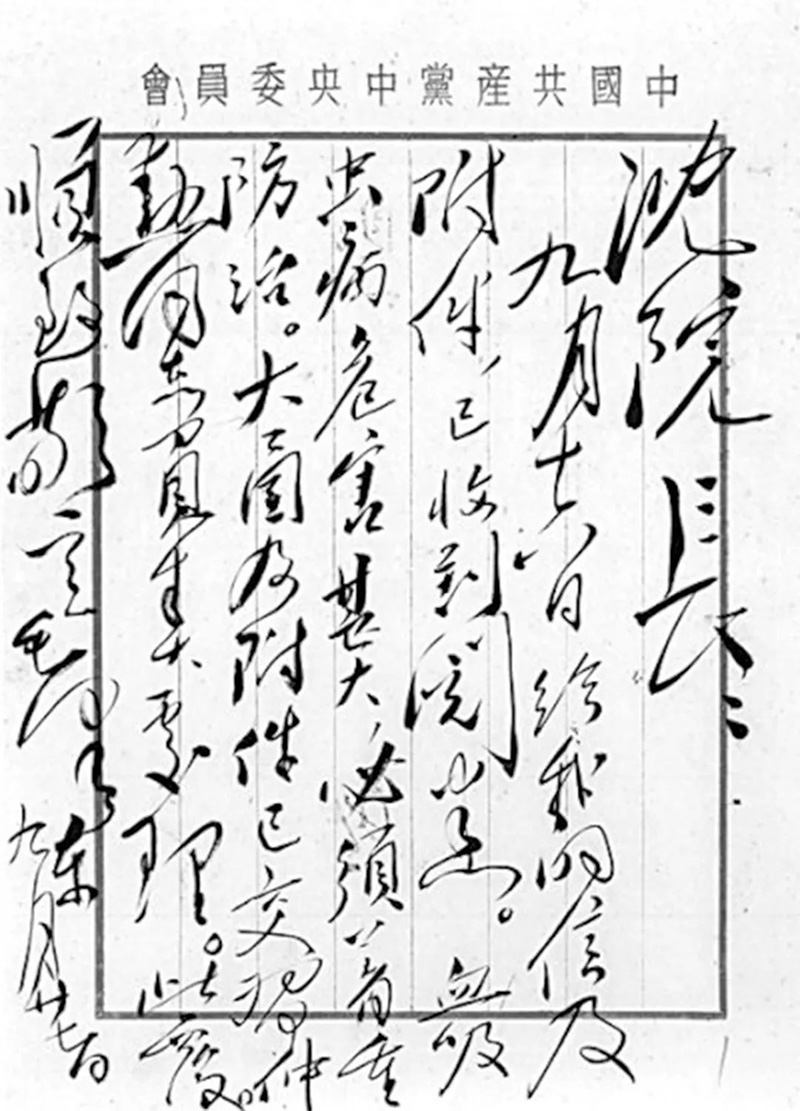 中國共産黨中央委員會
沈院長：
九月十六日給我的信及
附件，已收到閱悉。血吸
虫病危害甚大，必須着重
防治。大函及附件已交習仲
勳同志負責處理。此覆。
順致敬意 毛澤東 九月廿七日